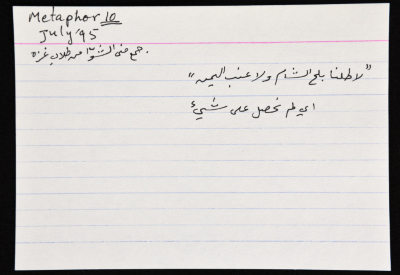 Metaphor 10
July 95
جمع منى الشوا من طلاب غزة.
"لا طلنا بلح الشام ولا عنب اليمن"
اي لم نحصل على شيئ